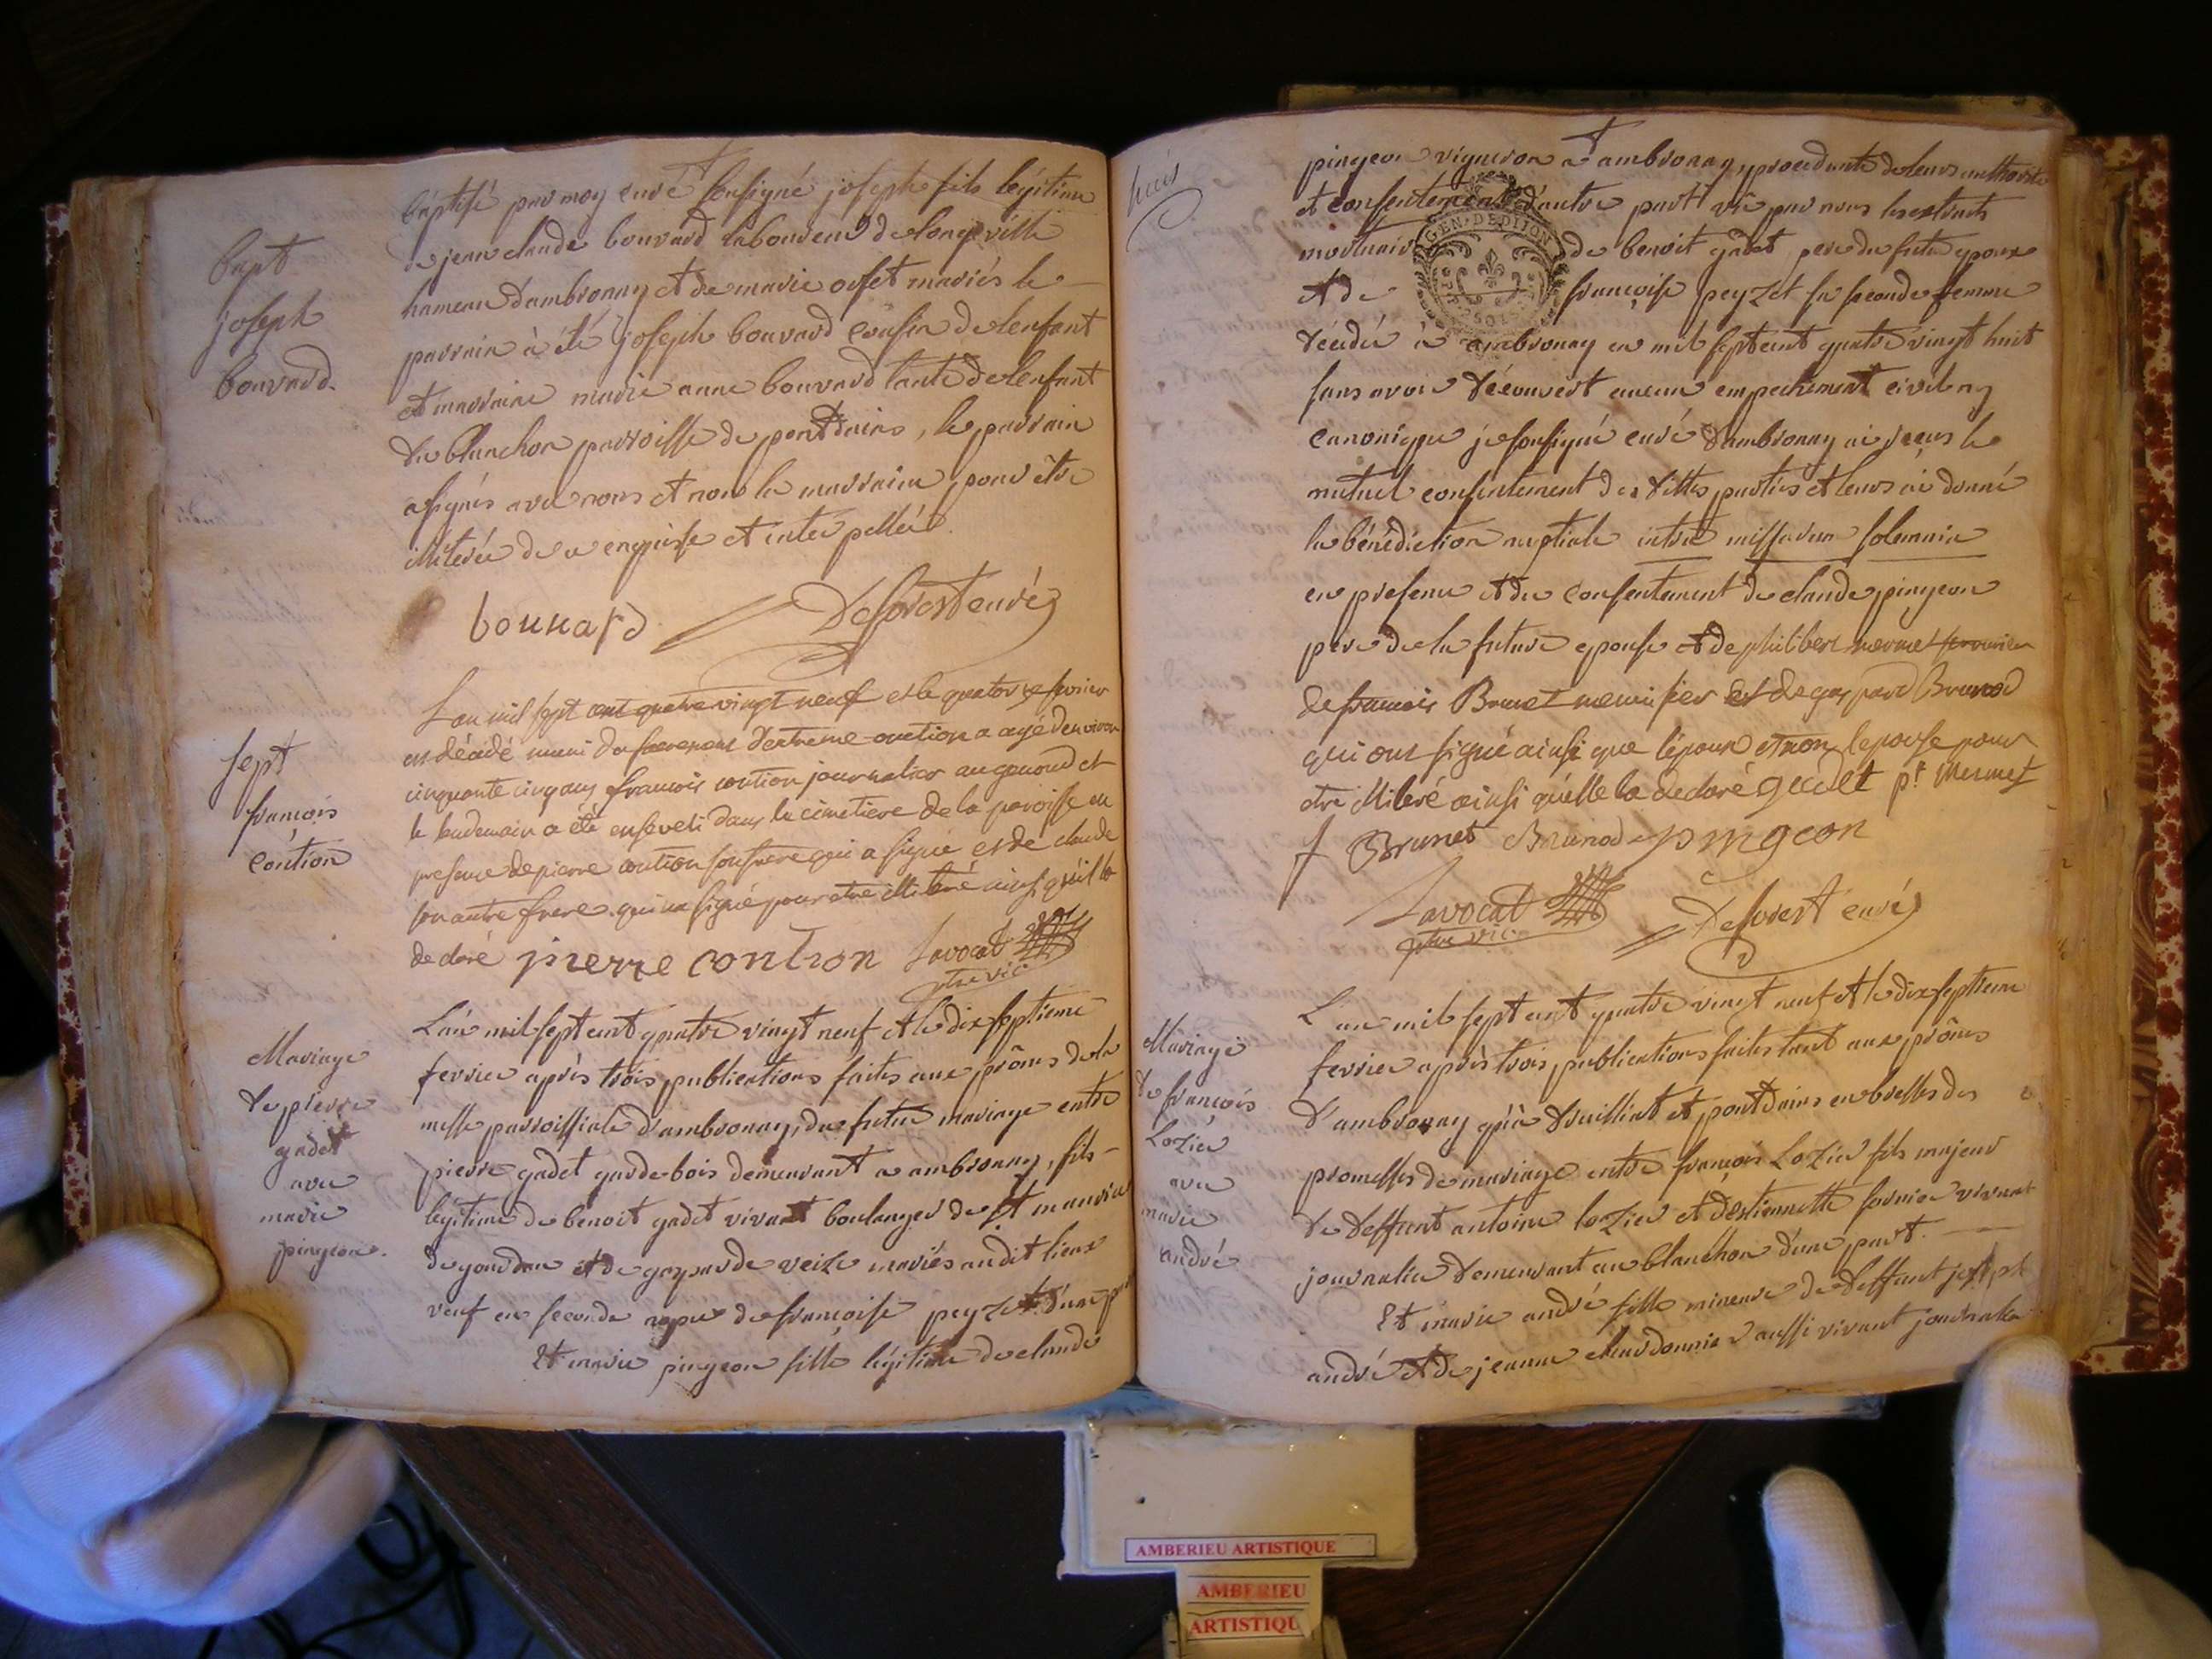 bapt
joseph
bouvard.
baptisé par moy curé sousigné joseph fils légitime
de jean claude bouvard laboureur de longeville
hameau d'ambronay et de marie orset mariés le
parrain à été joseph bouvard cousin de lenfant
et marraine marie anne bouvard tante de lenfant
du blanchon parroisse de pontdains, le parrain
a signés avec nous et non la marraine pour être
illiterée de ce enquise et interpellée
bouvard Deforest curé
L'an mil sept cent quatre vingt neuf et le quatorze fevrier
est décédé muni du sacrement d'extreme onction agé denviron
cinquante cinq ans françois contion journalier au genoud et
le lendemain a été enseveli dans le cimetiere de la paroisse en
presence de pierre contion son frere qui a signé et de claude
son autre frere qui na signé pour etre illiteré ainsi quil la
declaré pierre contion Lavocat
ptre vic
sept
françois
contion
Mariage
de pierre
gadet
avec
marie
pingeon.
L'an mil sept cent quatre vingt neuf et le dix septieme
fevrier après trois publications faites aux prônes de la
messe parroissiale d'ambronay, du futur mariage entre
pierre gadet garde bois demeurant a ambronay, fils
légitime de benoit gadet vivant boulanger de st maurice
de gourdan et de gasparde veize mariés audit lieux
veuf en seconde nopce de françoise peyzet d'une part
Et marie pingeon fille légitime de claude
huit
pingeon vigneron a ambronay, procedante de leurs authorité
et consentement d'autre part vû par nous les extraits
mortuaires de benoit gadet pere du futur epoux
et de françoise peyzet sa seconde femme
GEN. DE DIJON
décédée à ambronay en mil sept cent quatre vingt huit
sans avoir découvert aucun empechement civil ny
canonique je sousigné curé d'ambronay ai reçus le
mutuel consentement des dittes parties et leurs ai donné
la bénédiction nuptiale intra missarum solemnia
en presence et du consentement de claude pingeon
pere de la future epouse et de philibert mermet
de françois Brunet menuisier et de gaspard Brunod
qui ont signé ainsi que l'époux et non l'epouse pour
etre illiteré ainsi qu'elle la declaré gadet pt Mermet
f Brunet Brunod pingeon
Lavocat Deforest curé
ptre vic
Mariage
de françois
Lozier
avec
marie
andré
L'an mil sept cent quatre vingt neuf et le dix septieme
fevrier après trois publications faites tant aux prônes
d'ambronay qu'à druilliat et pontdains en bresse des
promesses de mariage entre françois Lozier fils majeur
de deffunt antoine lozier et d'estiennette fornier vivant
journalier demeurant au blanchon d'une part.
Et marie andré fille mineure de deffunt joseph
andré et de jeanne chardonnier aussi vivant journalier
AMBERIEU ARTISTIQUE
AMBERIEU
ARTISTIQU